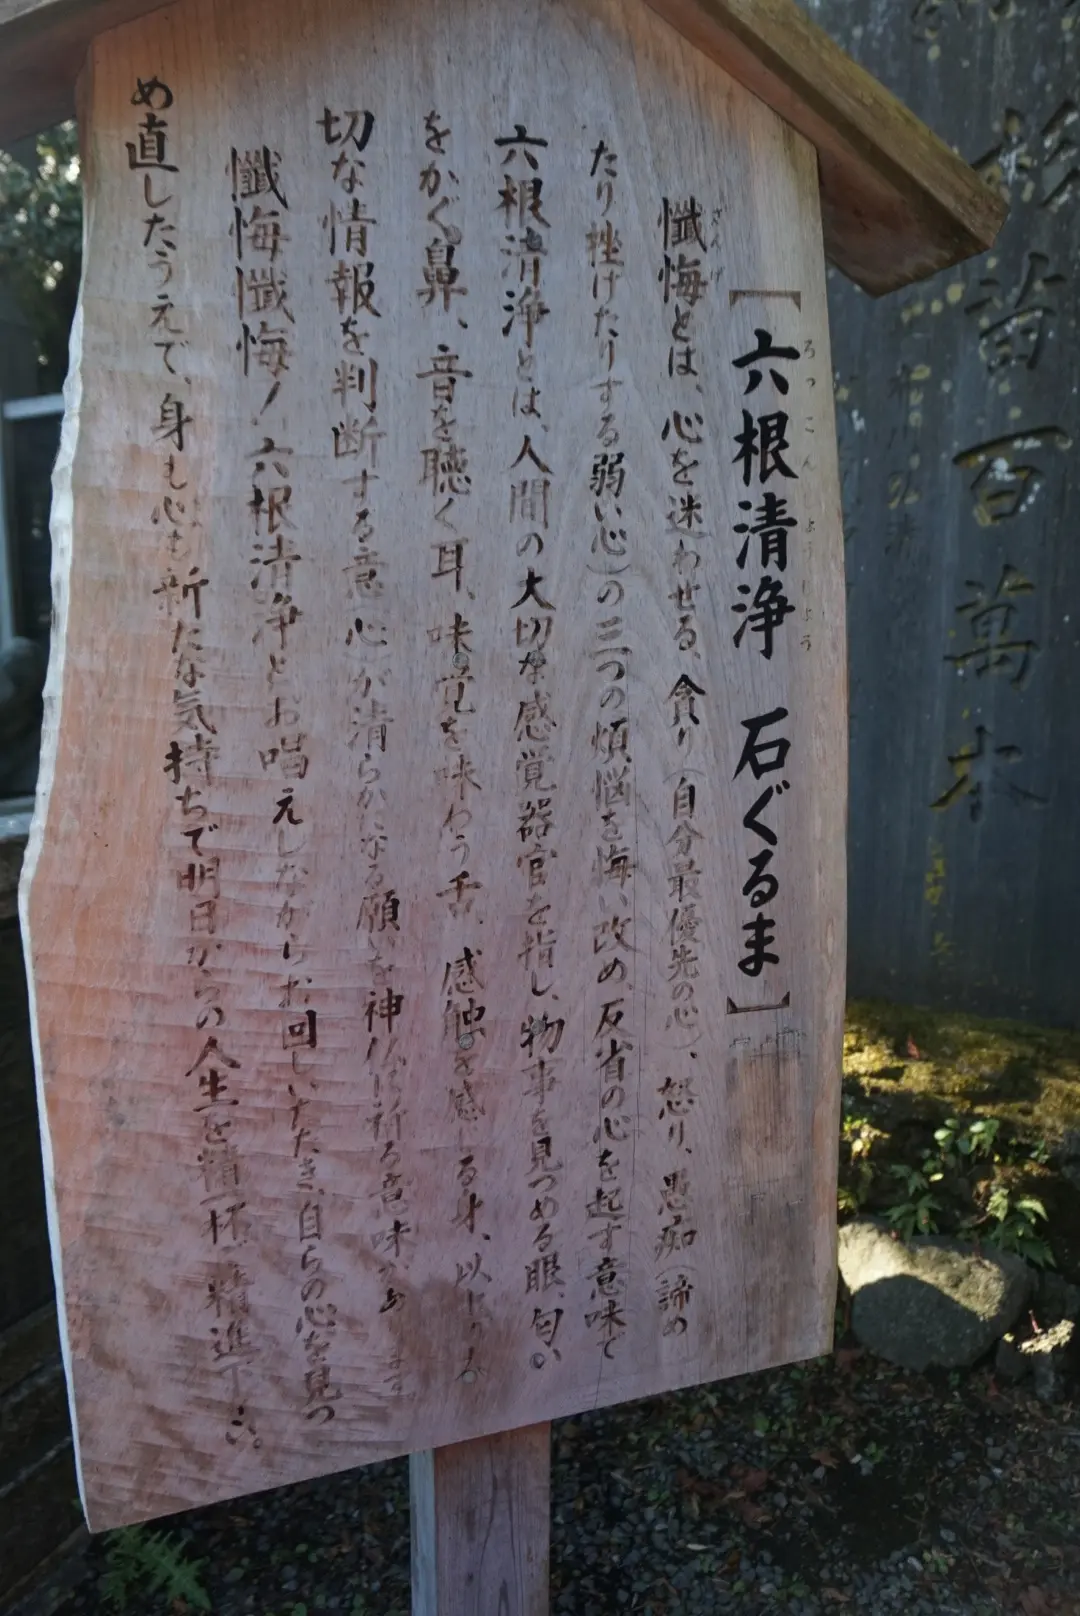 【六根清浄 石ぐるま】
ろっこんしょうじょう
懺悔とは、心を迷わせる、貪り（自分最優先の心）、怒り、愚痴（諦め
ざんげ
たり挫けたりする弱い心）の三つの煩悩を悔い改め、反省の心を起す意味で
六根清浄とは、人間の大切な感覚器官を指し、物事を見つめる眼、匂い
をかぐ鼻、音を聴く耳、味覚を味わう舌、感触を感じる身、以上の五
切な情報を判断する意（心）が清らかになる願いを神仏に祈る意味があります
懺悔懺悔！六根清浄とお唱えしながらお回しいただき、自らの心を見つ
め直したうえで、身も心も新たな気持ちで明日からの人生を精一杯、精進下さい。
杉苗百萬本